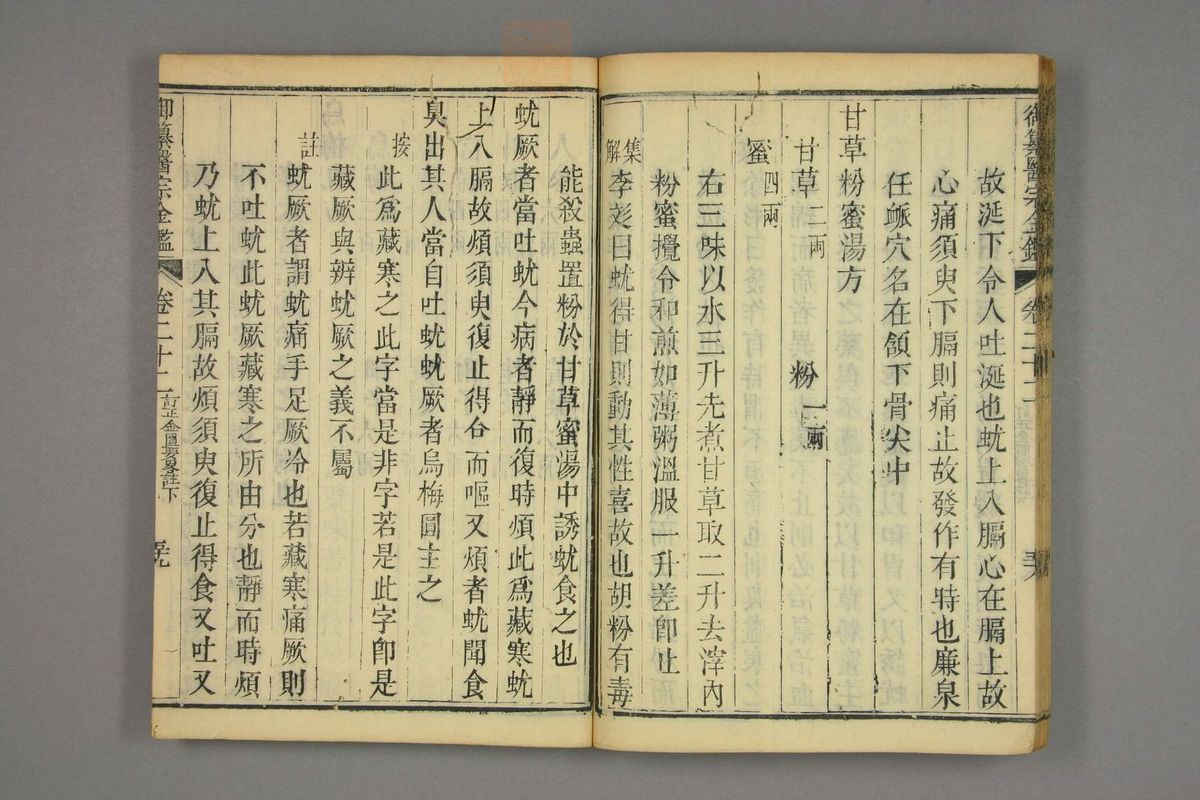 御纂醫宗金鑑 卷二十二
故涎下令人吐涎也蚘上入膈心在膈上故
心痛須臾下膈則痛止故發作有時也廉泉
任脈穴名在頷下骨尖中
甘草粉蜜湯方
甘草二兩 粉一兩
蜜四兩
右三味以水三升先煮甘草取二升去滓內
粉蜜攪令和煎如薄粥溫服一升差即止
集解 李彣曰蚘得甘則動其性喜故也胡粉有毒
能殺蟲置粉於甘草蜜湯中誘蚘食之也
蚘厥者當吐蚘今病者靜而復時煩此爲藏寒蚘
上入膈故煩須臾復止得食而嘔又煩者蚘聞食
臭出其人當自吐蚘蚘厥者烏梅圓主之
按 此爲藏寒之此字當是非字若是此字即是
藏厥與辨蚘厥之義不屬
註 蚘厥者謂蚘痛手足厥冷也若藏寒痛厥則
不吐蚘此蚘厥藏寒之所由分也靜而時煩
乃蚘上入其膈故煩須臾復止得食又吐又
御纂醫宗金鑑 卷二十二 訂正金匱要畧註下 五九